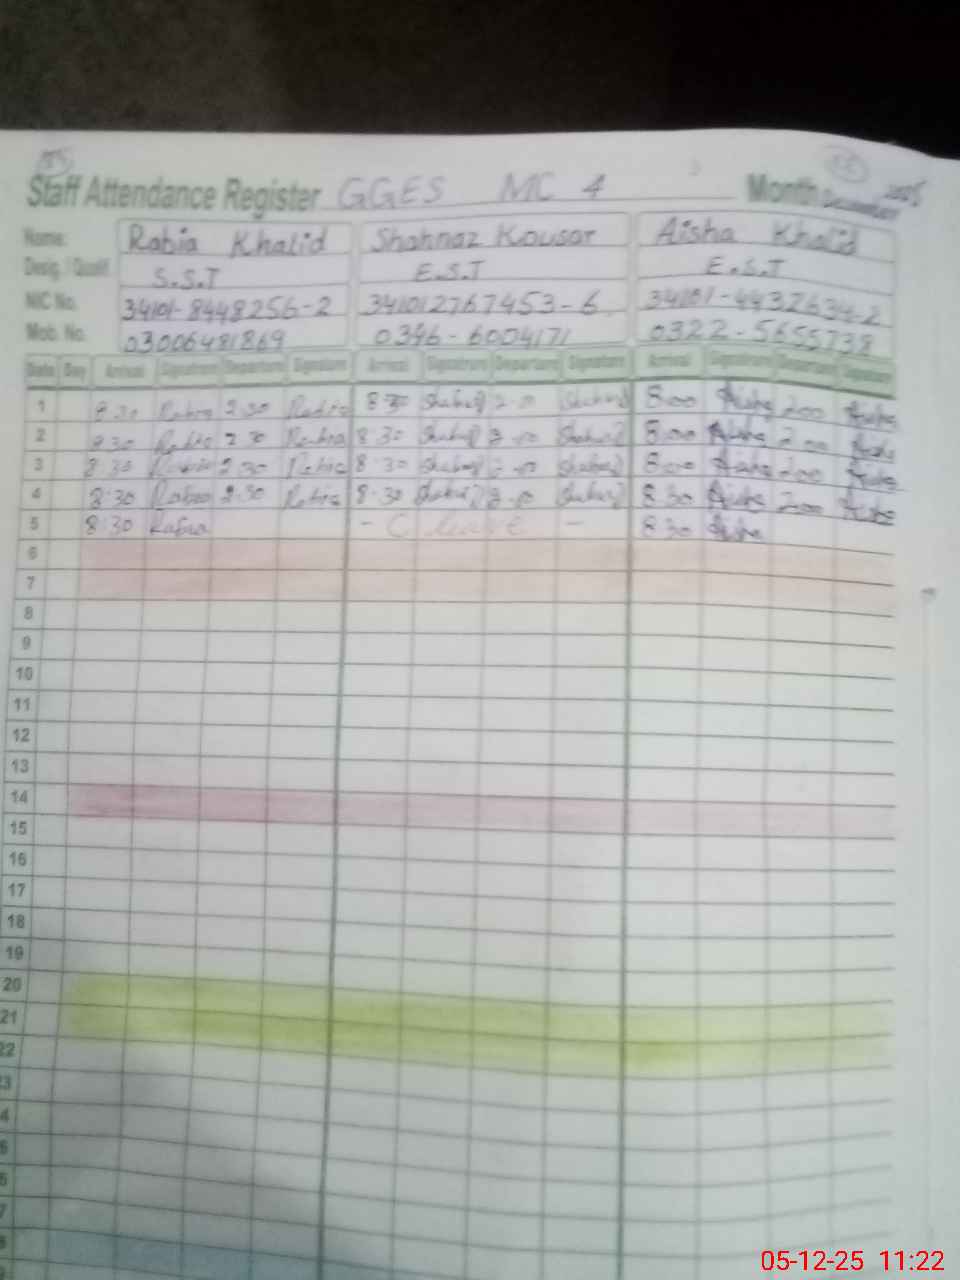 Staff Attendance Register GGES MC 4 Month December 2025
Name: Rabia Khalid Shahnaz Kousar Aisha Khalid
Desig. / Qualif. S.S.T E.S.T E.S.T
NIC No. 34101-8448256-2 341012767453-6 34101-4432634-2
Mob. No. 03006481869 0346-6004171 0322-5655738
Date Day Arrival Signature Departure Signature Arrival Signature Departure Signature Arrival Signature Departure Signature
1 8:30 Rabia 2:30 Rabia 8:30 8:00 Aisha 200 Aisha
2 8:30 Rabia 2:30 Rabia 8:30 8:00 Aisha 200 Aisha
3 8:30 Rabia 2:30 Rabia 8:30 8:00 Aisha 200 Aisha
4 8:30 Rabia 2:30 Rabia 8:30 8:30 Aisha 200 Aisha
5 8:30 Rabia - C leave - 8:30 Aisha
6
7
8
9
10
11
12
13
14
15
16
17
18
19
20
21
22
3
4
5
6
7
8
05-12-25 11:22